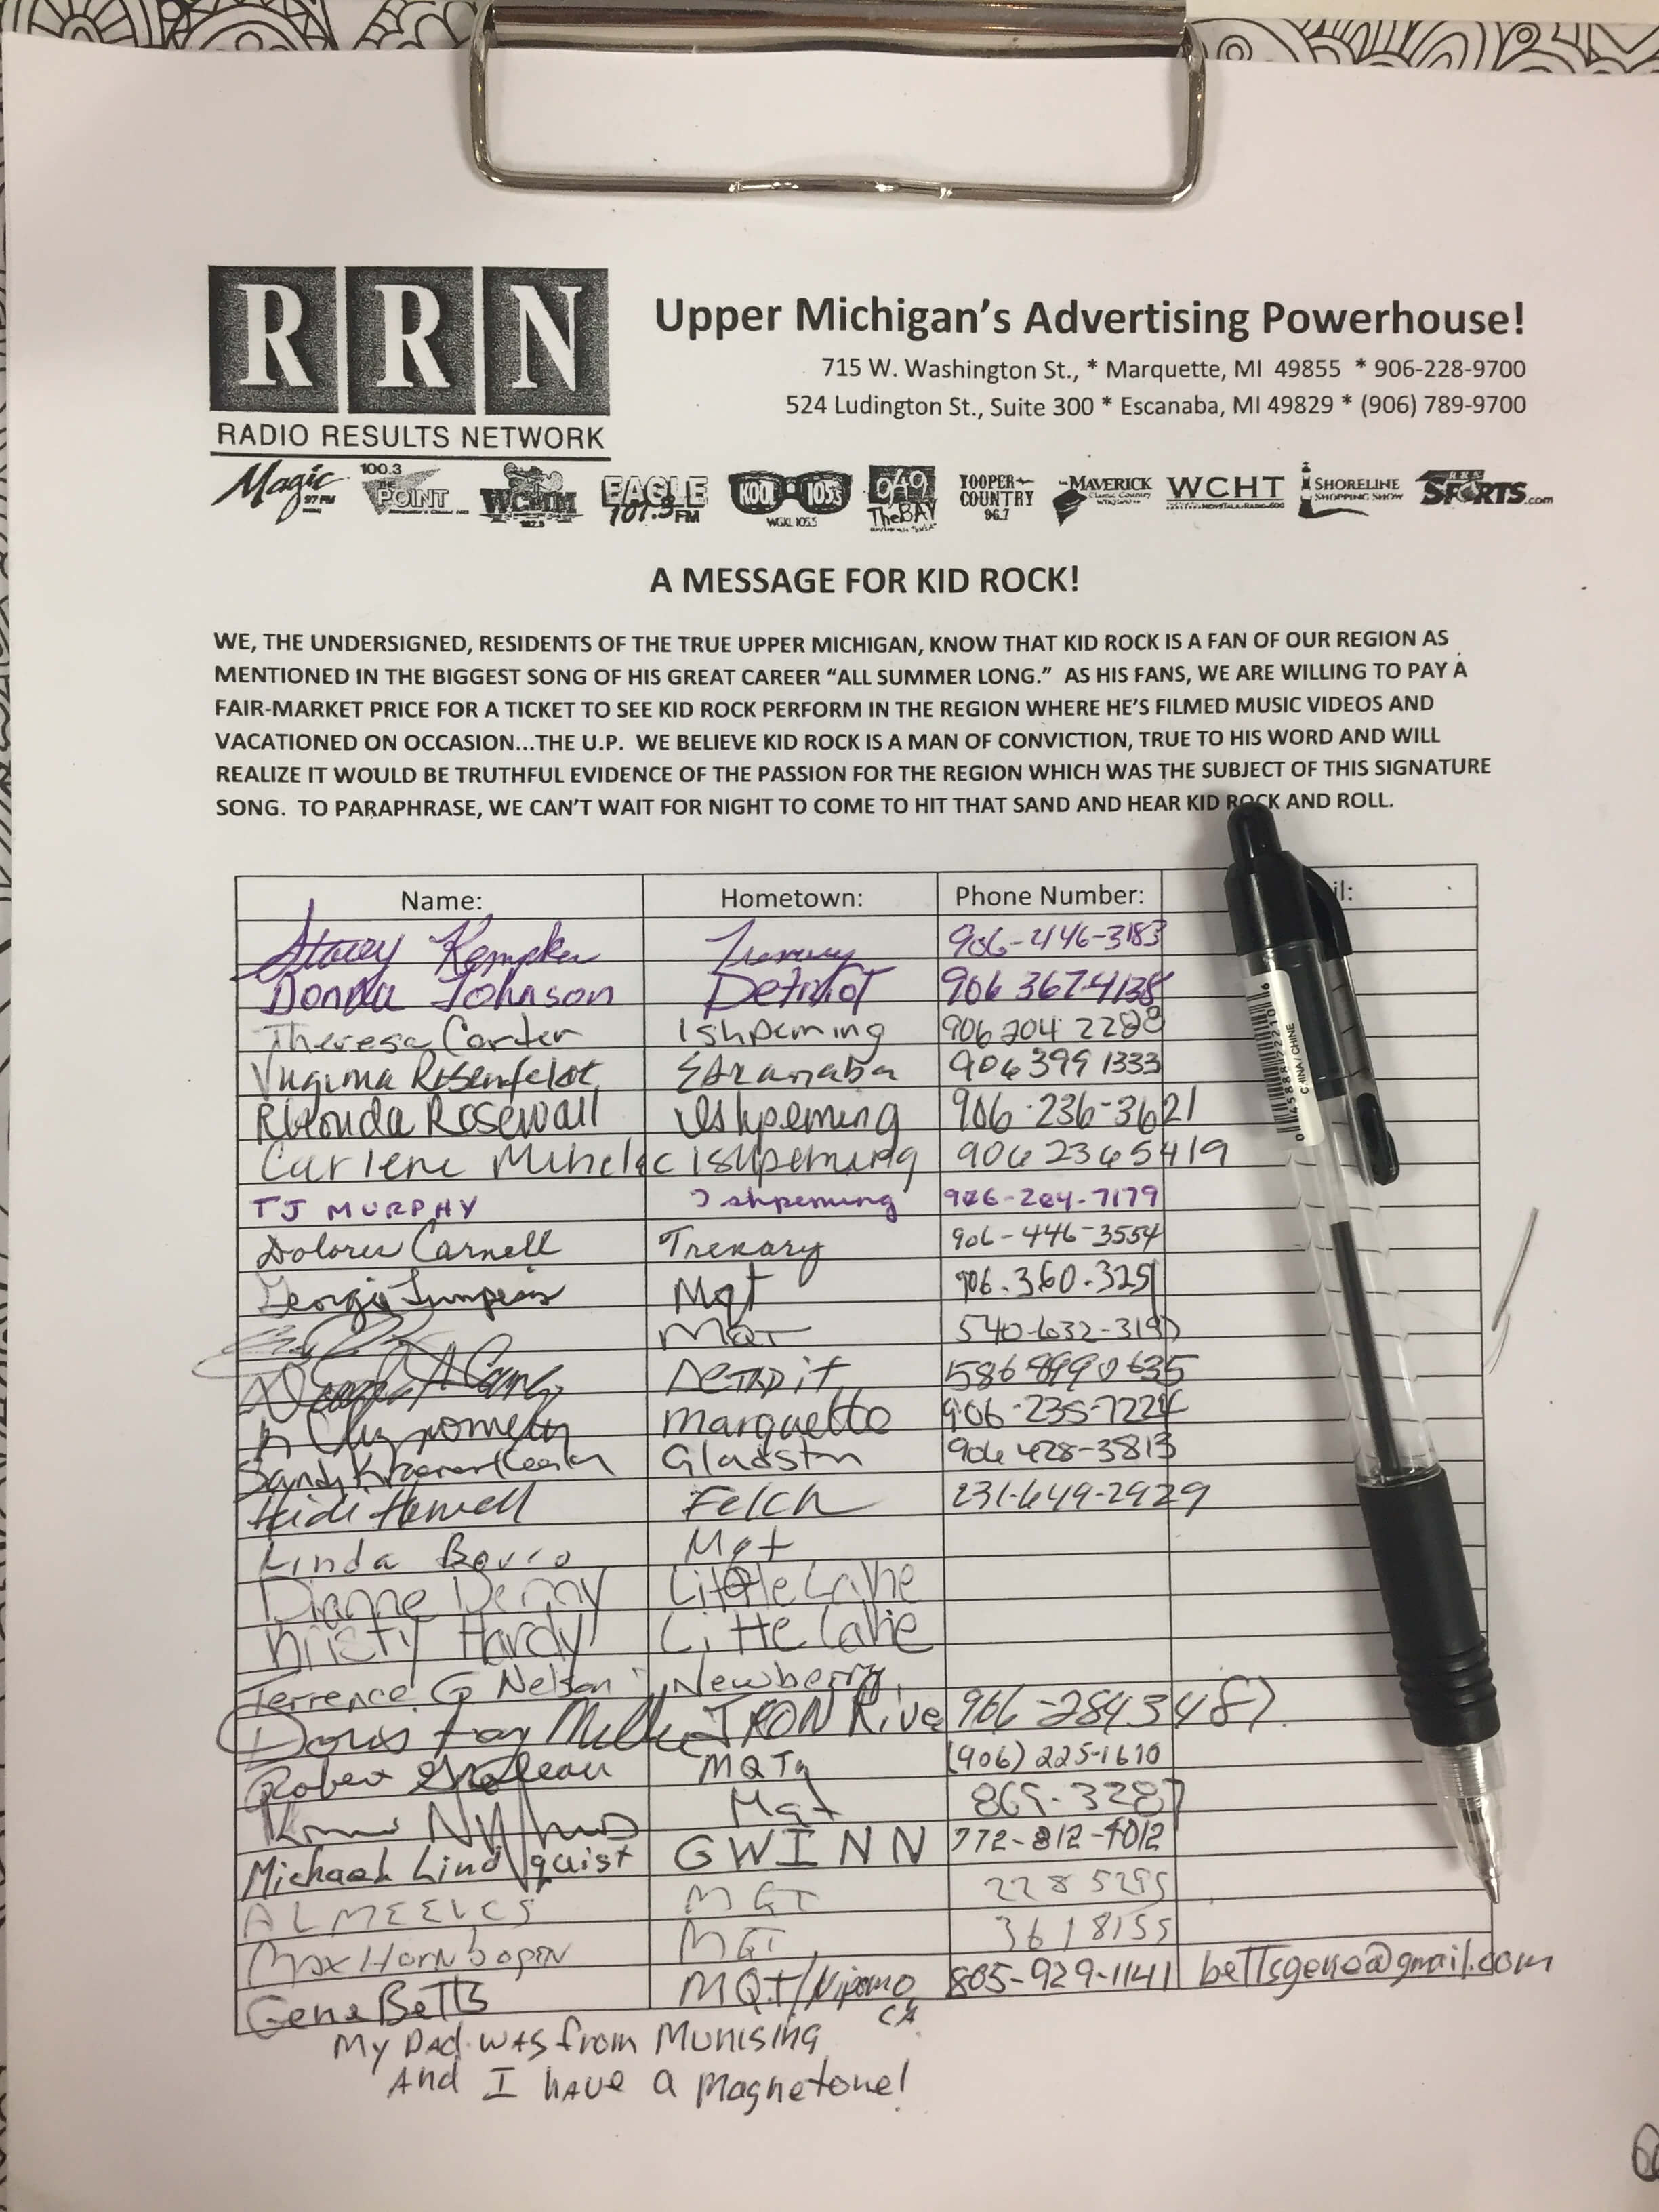 RRN
RADIO RESULTS NETWORK
Upper Michigan's Advertising Powerhouse!
715 W. Washington St., * Marquette, MI 49855 * 906-228-9700
524 Ludington St., Suite 300 * Escanaba, MI 49829 * (906) 789-9700
Magic 97 FM 100.3 The POINT WCHM EAGLE 101.3 FM KOOL 105.5 WGKL 105.5 949 The BAY YOOPER COUNTRY 96.7 MAVERICK Classic Country WCHT SHORELINE SHOPPING SHOW RRN SPORTS.com
A MESSAGE FOR KID ROCK!
WE, THE UNDERSIGNED, RESIDENTS OF THE TRUE UPPER MICHIGAN, KNOW THAT KID ROCK IS A FAN OF OUR REGION AS
MENTIONED IN THE BIGGEST SONG OF HIS GREAT CAREER "ALL SUMMER LONG." AS HIS FANS, WE ARE WILLING TO PAY A
FAIR-MARKET PRICE FOR A TICKET TO SEE KID ROCK PERFORM IN THE REGION WHERE HE'S FILMED MUSIC VIDEOS AND
VACATIONED ON OCCASION...THE U.P. WE BELIEVE KID ROCK IS A MAN OF CONVICTION, TRUE TO HIS WORD AND WILL
REALIZE IT WOULD BE TRUTHFUL EVIDENCE OF THE PASSION FOR THE REGION WHICH WAS THE SUBJECT OF THIS SIGNATURE
SONG. TO PARAPHRASE, WE CAN'T WAIT FOR NIGHT TO COME TO HIT THAT SAND AND HEAR KID ROCK AND ROLL.
Name: Hometown: Phone Number: il:
Stacey Kempker 906-446-3183
Donna Johnson Detroit 906 367-4138
Theresa Carter Ishpeming 906 204 2288
Virginia Rosenfeldt 906 399 1333
Rhonda Rosewall Ishpeming 906-236-3621
Carlene Mihelac Ishpeming 906 236 5419
TJ MURPHY Ishpeming 906-204-7179
Dolores Carnell Trenary 906-446-3554
Mqt 906.360.3251
MQT 540-632-3197
Detroit 586
Marquette 906-235-7224
Sandy Gladstn 906 428-3813
Heidi Howell Felch 231-649-2929
Linda Mqt
Dianne Little Lake
Kristy Hardy Little Lake
Terrence G Nelson Newberry
Doris Fay IRON River 906-284 3487
Robert MQT (906) 225-1610
Mqt 869-3287
Michael Lindquist GWINN 772-812-4012
AL MQT 228 5295
Max Hornbogen MQT 361 8155
Gene Betts MQT/Nipomo CA 805-929-1141 bettsgene@gmail.com
My DAD WAS from MUNISING
And I HAVE a Magnetone!
0 45888 22210 6
CHINA / CHINE